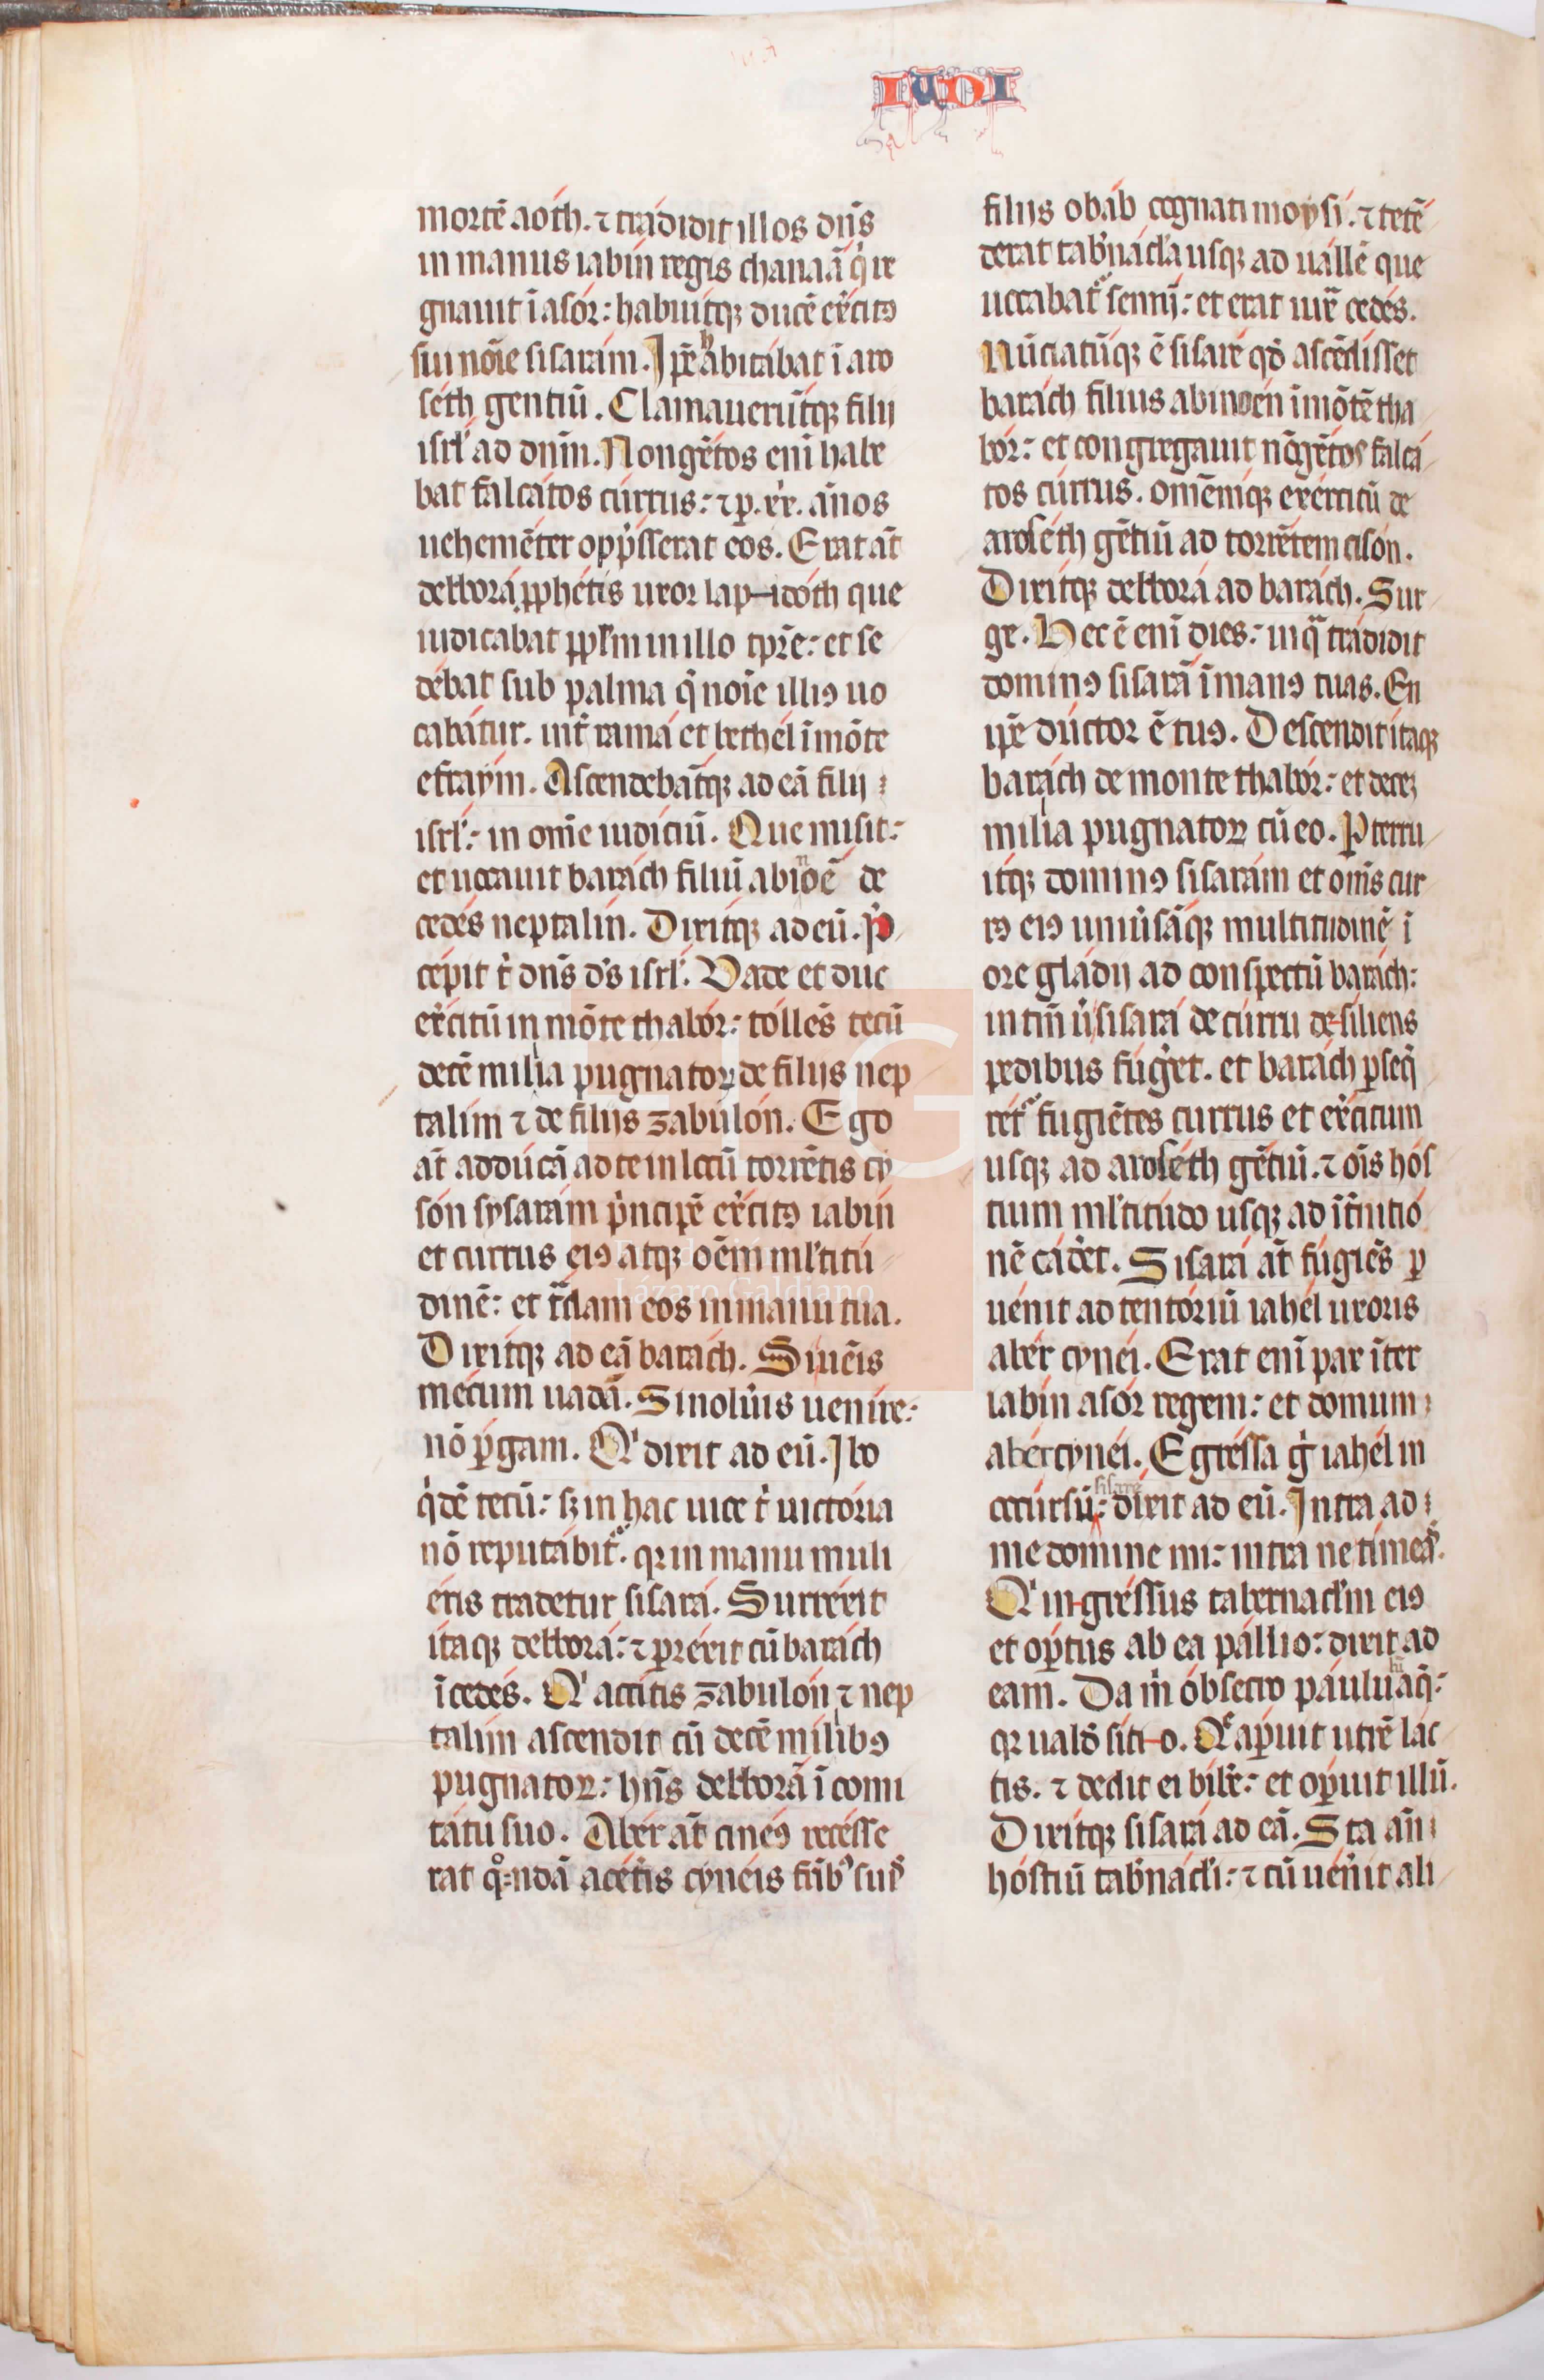 IUDI
mortē aoth. ⁊ tradidit illos dn̄s
in manus iabin regis chanaā q̇ re
gnauit ī asor: habuitqꝫ ducē ex̄citꝯ
sui noīe sisaram. Ip̄e habitabat ī aro
seth gentiū. Clamauerūtqꝫ filij
isrl' ad dnm̄. Nongētos enī habe
bat falcatos currus: ⁊ ꝑ .xx. annos
uehemēter opp̄sserat eos. Erat aūt
delbora ꝓphetis uxor lapidoth que
iudicabat ppl̄m in illo tpr̄e: et se
debat sub palma q̄ noīe illiꝯ uo
cabatur. int̄ rama et bethel ī mōte
efraym. Ascendebātqꝫ ad eā filij
isrl': in omē iudiciū. Que misit:
et uocauit barach filiū abinoē de
cedes neptalin. Dixitqꝫ ad eū. P̄
cepit t̄ dn̄s d's isrl'. Vade et duc
ex̄citū in mōte thabor: tolles tecū
decē milia pugnatoꝝ de filijs nep
talim ⁊ de filijs zabulon. Ego
aūt adducā ad te in locū torrētis cy
son sysaram p̄ncipē ex̄citꝯ iabin
et currus eiꝯ atqꝫ oēm ml'titu
dinē: et t̄dam eos in manu tua.
Dixitqꝫ ad eā barach. Si ueīs
mecum uadā. Si nolūis uenire:
nō ꝑgam. Q' dixit ad eū. Ibo
q̇dē tecū: sꝫ in hac uice t̄ uictoria
nō reputabit̄. qꝛ in manu muli
eris tradetur sisara. Surrexit
itaqꝫ delbora: ⁊ ꝑrexit cū barach
ī cedes. Q' accitis zabulon ⁊ nep
talim ascendit cū decē milibꝯ
pugnatoꝝ: hn̄s delborā ī comi
tatu suo. Aber aūt cineꝯ recesse
rat qͦndā a cet̄is cyneis fr̄ibꝯ suis
filijs obab cognati moysi. ⁊ tetē
derat tab'nac'la usqꝫ ad uallē que
uocabat̄ sennī: et erat iux̄ cedes.
Nūciatūqꝫ ē sisare qd̄ ascēdisset
barach filius abinoen ī mōtē tha
bor: et congregauit nōgētos falca
tos currus. omēmqꝫ exercitū de
aroseth gētiū ad torrētem cison.
Dixitqꝫ delbora ad barach. Sur
ge. Hec ē enī dies: in qᵃ tradidit
dominꝯ sisarā ī manꝯ tuas. En
ip̄e ductor ē tuꝯ. Descendit itaqꝫ
barach de monte thabor: et decez
milia pugnatoꝝ cū eo. P̄terru
itqꝫ dominꝯ sisaram et omīs cur
rꝯ eiꝯ uniūsāqꝫ multitudinē ī
ore gladij ad conspectū barach:
in tm̄ ū sisara de curru desiliens
pedibus fuḡet. et barach ꝑseq̄
ret̄ fugiētes currus et ex̄citum
usqꝫ ad aroseth gētiū. ⁊ oīs hos
tium ml'titudo usqꝫ ad īt̄nitio
nē cad̄et. Sisara aūt fugiēs ꝑ
uenit ad tentoriū iahel uxoris
aber cynei. Erat enī pax īter
iabin asor regem: et domum
aber cynei. Egressa ġ iahel in
occursū sisare: dixit ad eū. Intra ad
me domine mi: intra ne timeas.
Q' ingressus tabernac'lm eiꝯ
et oꝑtus ab ea pallio: dixit ad
eam. Da m̄ obsecro paululū aq̄:
qꝛ uald' sitio. Q̄ aꝑuit utrē lac
tis. ⁊ dedit ei bib'e: et oꝑuit illū.
Dixitqꝫ sisara ad eā. Sta an̄
hostiū tab'nac'li: ⁊ cū uen̄it ali